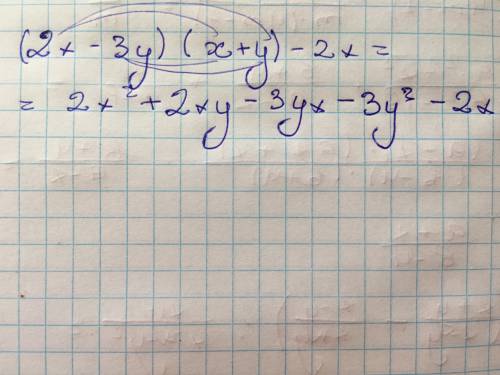 (2x - 3y) (x + y) - 2x =
= 2x² + 2xy - 3yx - 3y² - 2x